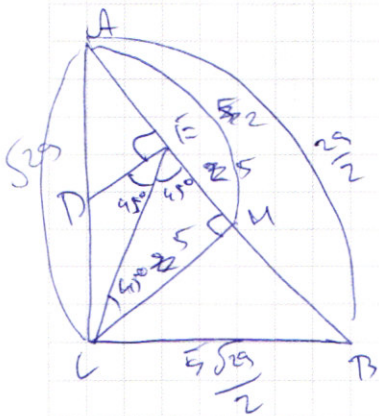 A
√29
E
2
29/2
D
45°
45°
5
H
5
45°
C
5√29/2
B